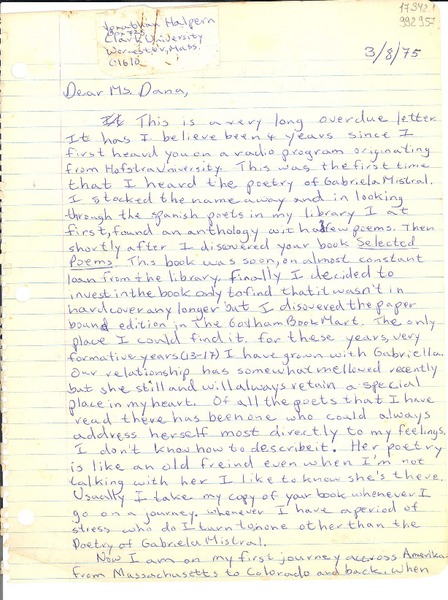 Jonathan Halpern
Box 725
Clark University
Worcester, Mass.
01610
179421
992957
3/8/75
Dear Ms. Dana,
It This is a very long overdue letter
It has I believe been 4 years since I
first heard you on a radio program originating
from Hofstra University. This was the first time
that I heard the poetry of Gabriela Mistral.
I stocked the name away and in looking
through the spanish poets in my library I at
first, found an anthology with a few poems. Then
shortly after I discovered your book Selected
Poems. This book was soon, on almost constant
loan from the library. finally I decided to
invest in the book only to find that it wasn't in
hardcover any longer but I disovered the paper
bound edition in The Gotham Book Mart. The only
place I could find it, for these years, very
formative years (13-17) I have grown with Gabriella.
Our relationship has somewhat mellowed recently
but she still and will always retain a special
place in my heart. Of all the poets that I have
read there has been one who could always
address herself most directly to my feelings.
I don't know how to describe it. Her poetry
is like an old freind even when I'm not
talking with her I like to know she's there.
Usually I take my copy of your book whenever I
go on a journey. whenever I have a period of
stress who do I turn to none other than the
Poetry of Gabriela Mistral.
Now I am on my first journey across Amerika
from Massachusetts to Colorado and back. When